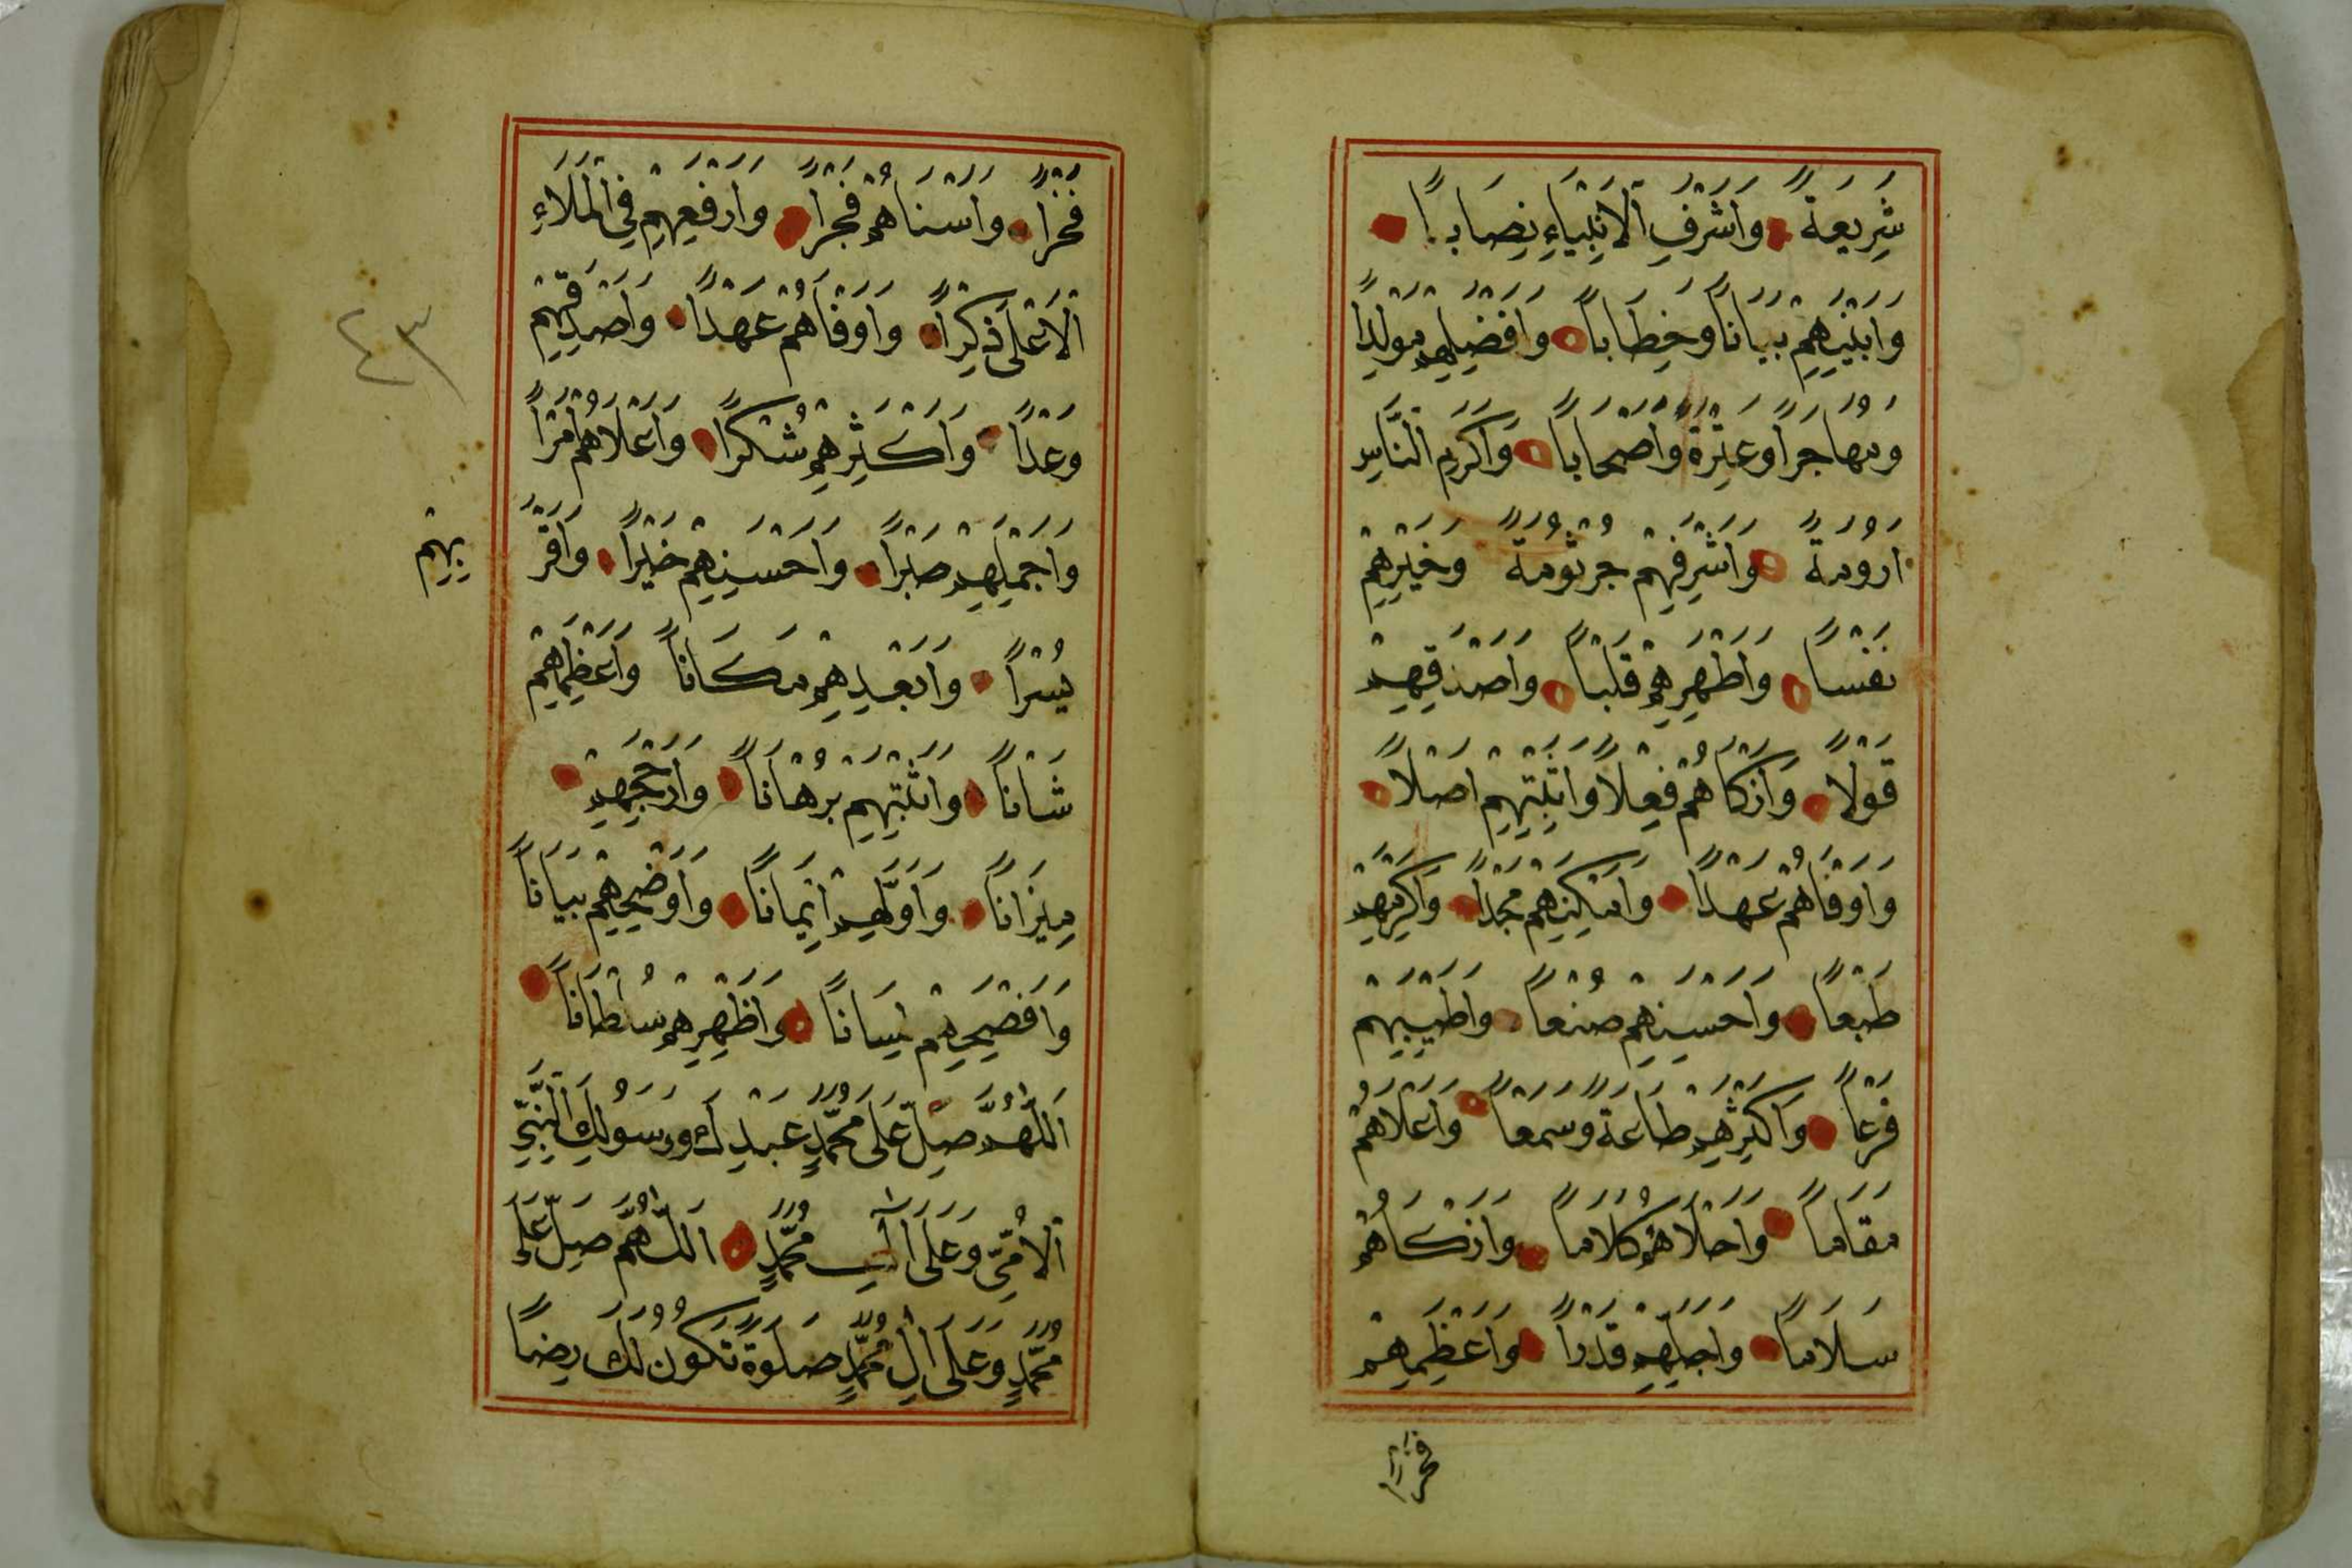 شَرِيعَةً وَاَشْرَفِ الْاَنْبِيَاءِ نِصَابًا
وَاَبْيَنِهِمْ بَيَانًا وَخِطَابًا وَاَفْضَلِهِمْ مَوْلِدًا
وَمُهَاجَرًا وَعِتْرَةً وَاَصْحَابًا وَاَكْرَمِ النَّاسِ
اَرُومَةً وَاَشْرَفِهِمْ جُرْثُومَةً وَخَيْرِهِمْ
نَفْسًا وَاَطْهَرِهِمْ قَلْبًا وَاَصْدَقِهِمْ
قَوْلًا وَاَزْكَاهُمْ فِعْلًا وَاَثْبَتِهِمْ اَصْلًا
وَاَوْفَاهُمْ عَهْدًا وَاَمْكَنِهِمْ مَجْدًا وَاَكْرَمِهِمْ
طَبْعًا وَاَحْسَنِهِمْ صُنْعًا وَاَطْيَبِهِمْ
فَرْعًا وَاَكْثَرِهِمْ طَاعَةً وَسَمْعًا وَاَعْلَاهُمْ
مَقَامًا وَاَحْلَاهُمْ كَلَامًا وَاَزْكَاهُمْ
سَلَامًا وَاَجَلِّهِمْ قَدْرًا وَاَعْظَمِهِمْ
فَخْرًا
فَخْرًا وَاَسْنَاهُمْ فَجْرًا وَاَرْفَعِهِمْ فِي الْمَلَاءِ
الْاَعْلَى ذِكْرًا وَاَوْفَاهُمْ عَهْدًا وَاَصْدَقِهِمْ
٤٣
وَعْدًا وَاَكْثَرِهِمْ شُكْرًا وَاَعْلَاهُمْ اَمْرًا
وَاَجْمَلِهِمْ صَبْرًا وَاَحْسَنِهِمْ خَيْرًا وَاَقْرَ
بِهِمْ
يُسْرًا وَاَبْعَدِهِمْ مَكَانًا وَاَعْظَمِهِمْ
شَانًا وَاَثْبَتِهِمْ بُرْهَانًا وَاَرْجَحِهِمْ
مِيزَانًا وَاَوَّلِهِمْ اِيْمَانًا وَاَوْضَحِهِمْ بَيَانًا
وَاَفْصَحِهِمْ لِسَانًا وَاَظْهَرِهِمْ سُلْطَانًا
اَللّٰهُمَّ صَلِّ عَلَى مُحَمَّدٍ عَبْدِكَ وَرَسُولِكَ النَّبِيِّ
الْاُمِّيِّ وَعَلَى اٰلِ مُحَمَّدٍ اَللّٰهُمَّ صَلِّ عَلَى
مُحَمَّدٍ وَعَلَى اٰلِ مُحَمَّدٍ صَلَوةً تَكُونُ لَكَ رِضًا